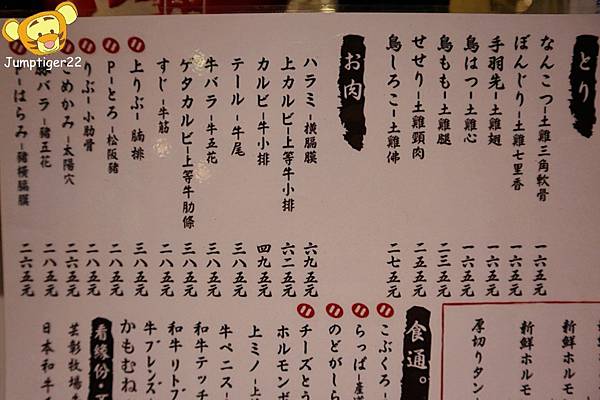 Jumptiger22
とり
なんこつ－土雞三角軟骨 一六五元
ぼんじり－土雞七里香 一六五元
手羽先－土雞翅 一六五元
鳥はつ－土雞心 一六五元
鳥もも－土雞腿 二三五元
せせり－土雞頸肉 二五五元
鳥しろこ－土雞佛 二七五元
お肉
ハラミ－橫膈膜 六九五元
上カルビ－上等牛小排 六二五元
カルビ－牛小排 四九五元
テール－牛尾 二八五元
牛バラ－牛五花 三八五元
ゲタカルビ－上等牛肋條 三八五元
すじ－牛筋 二八五元
上りぶ－腩排 三八五元
P－とろ－松阪豬 二八五元
りぶ－小肋骨 二八五元
こめかみ－太陽穴 二六五元
豚バラ－豬五花 二八五元
P－はらみ－豬橫膈膜 二六五元
新鮮ホルモ
新鮮ホル
厚切りタン
食通。
こぶくろ－
らっぱ－産
のどがしら
チーズとう
ホルモンボ
上ミノ－上
牛ペニス－
和牛テッチ
和牛リトブ
牛ブレンズ
かもむね
看緣份・
芸彰牧場
日本和牛